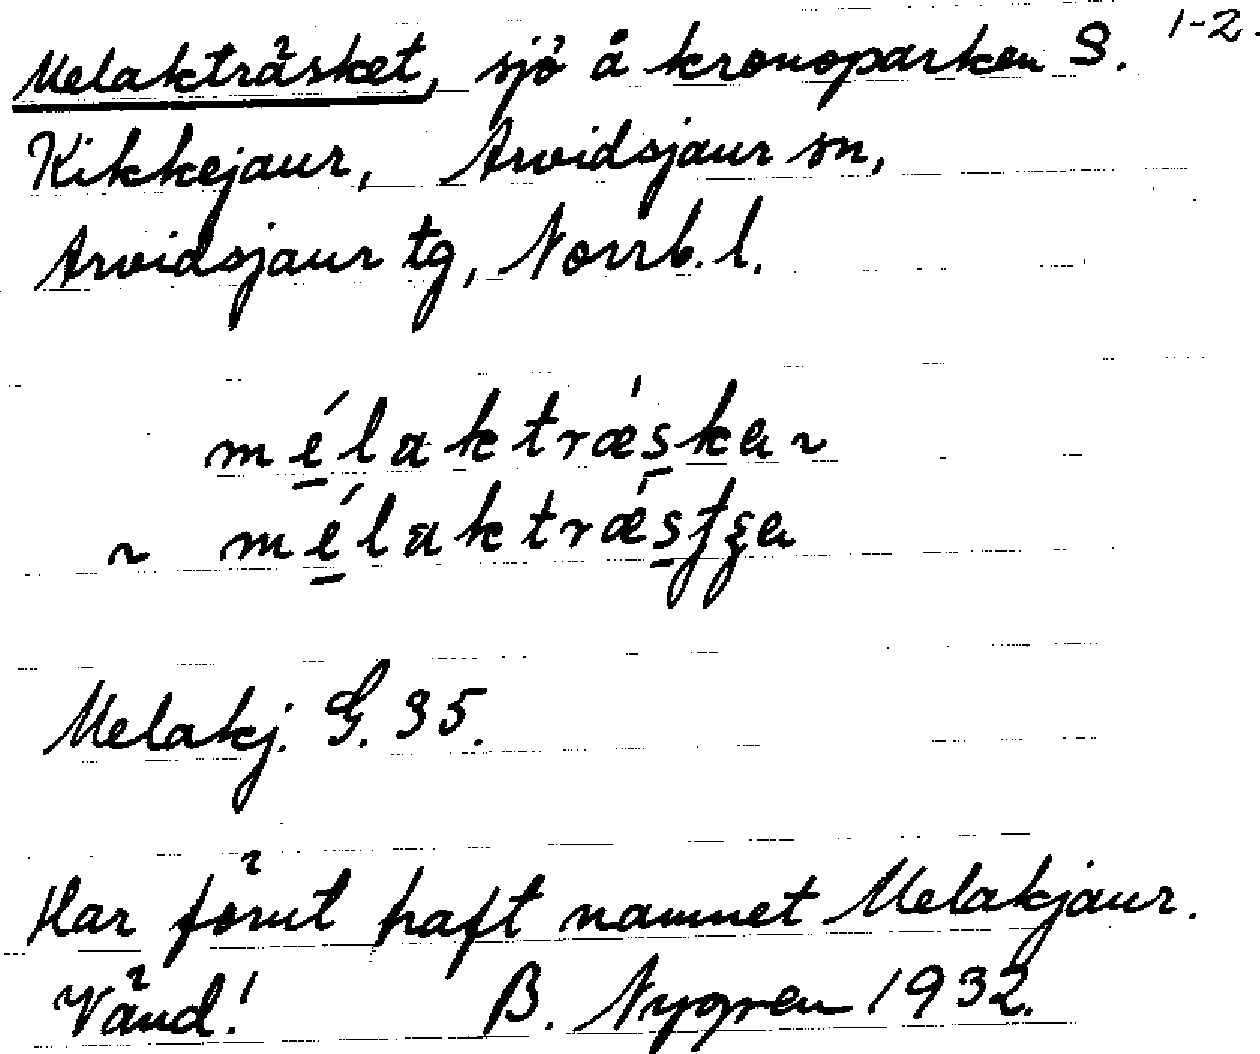 Melakträsket, sjö å kronoparken S. 1-2.
Kikkejaur, Arvidsjaur sn,
Arvidsjaur tg, Norrb. l.
mélaktræ̀ska ~
~ mélaktræ̀sʈʂa
Melakj. G. 35.
Har förut haft namnet Melakjaur.
Vänd! B. Nygren 1932.